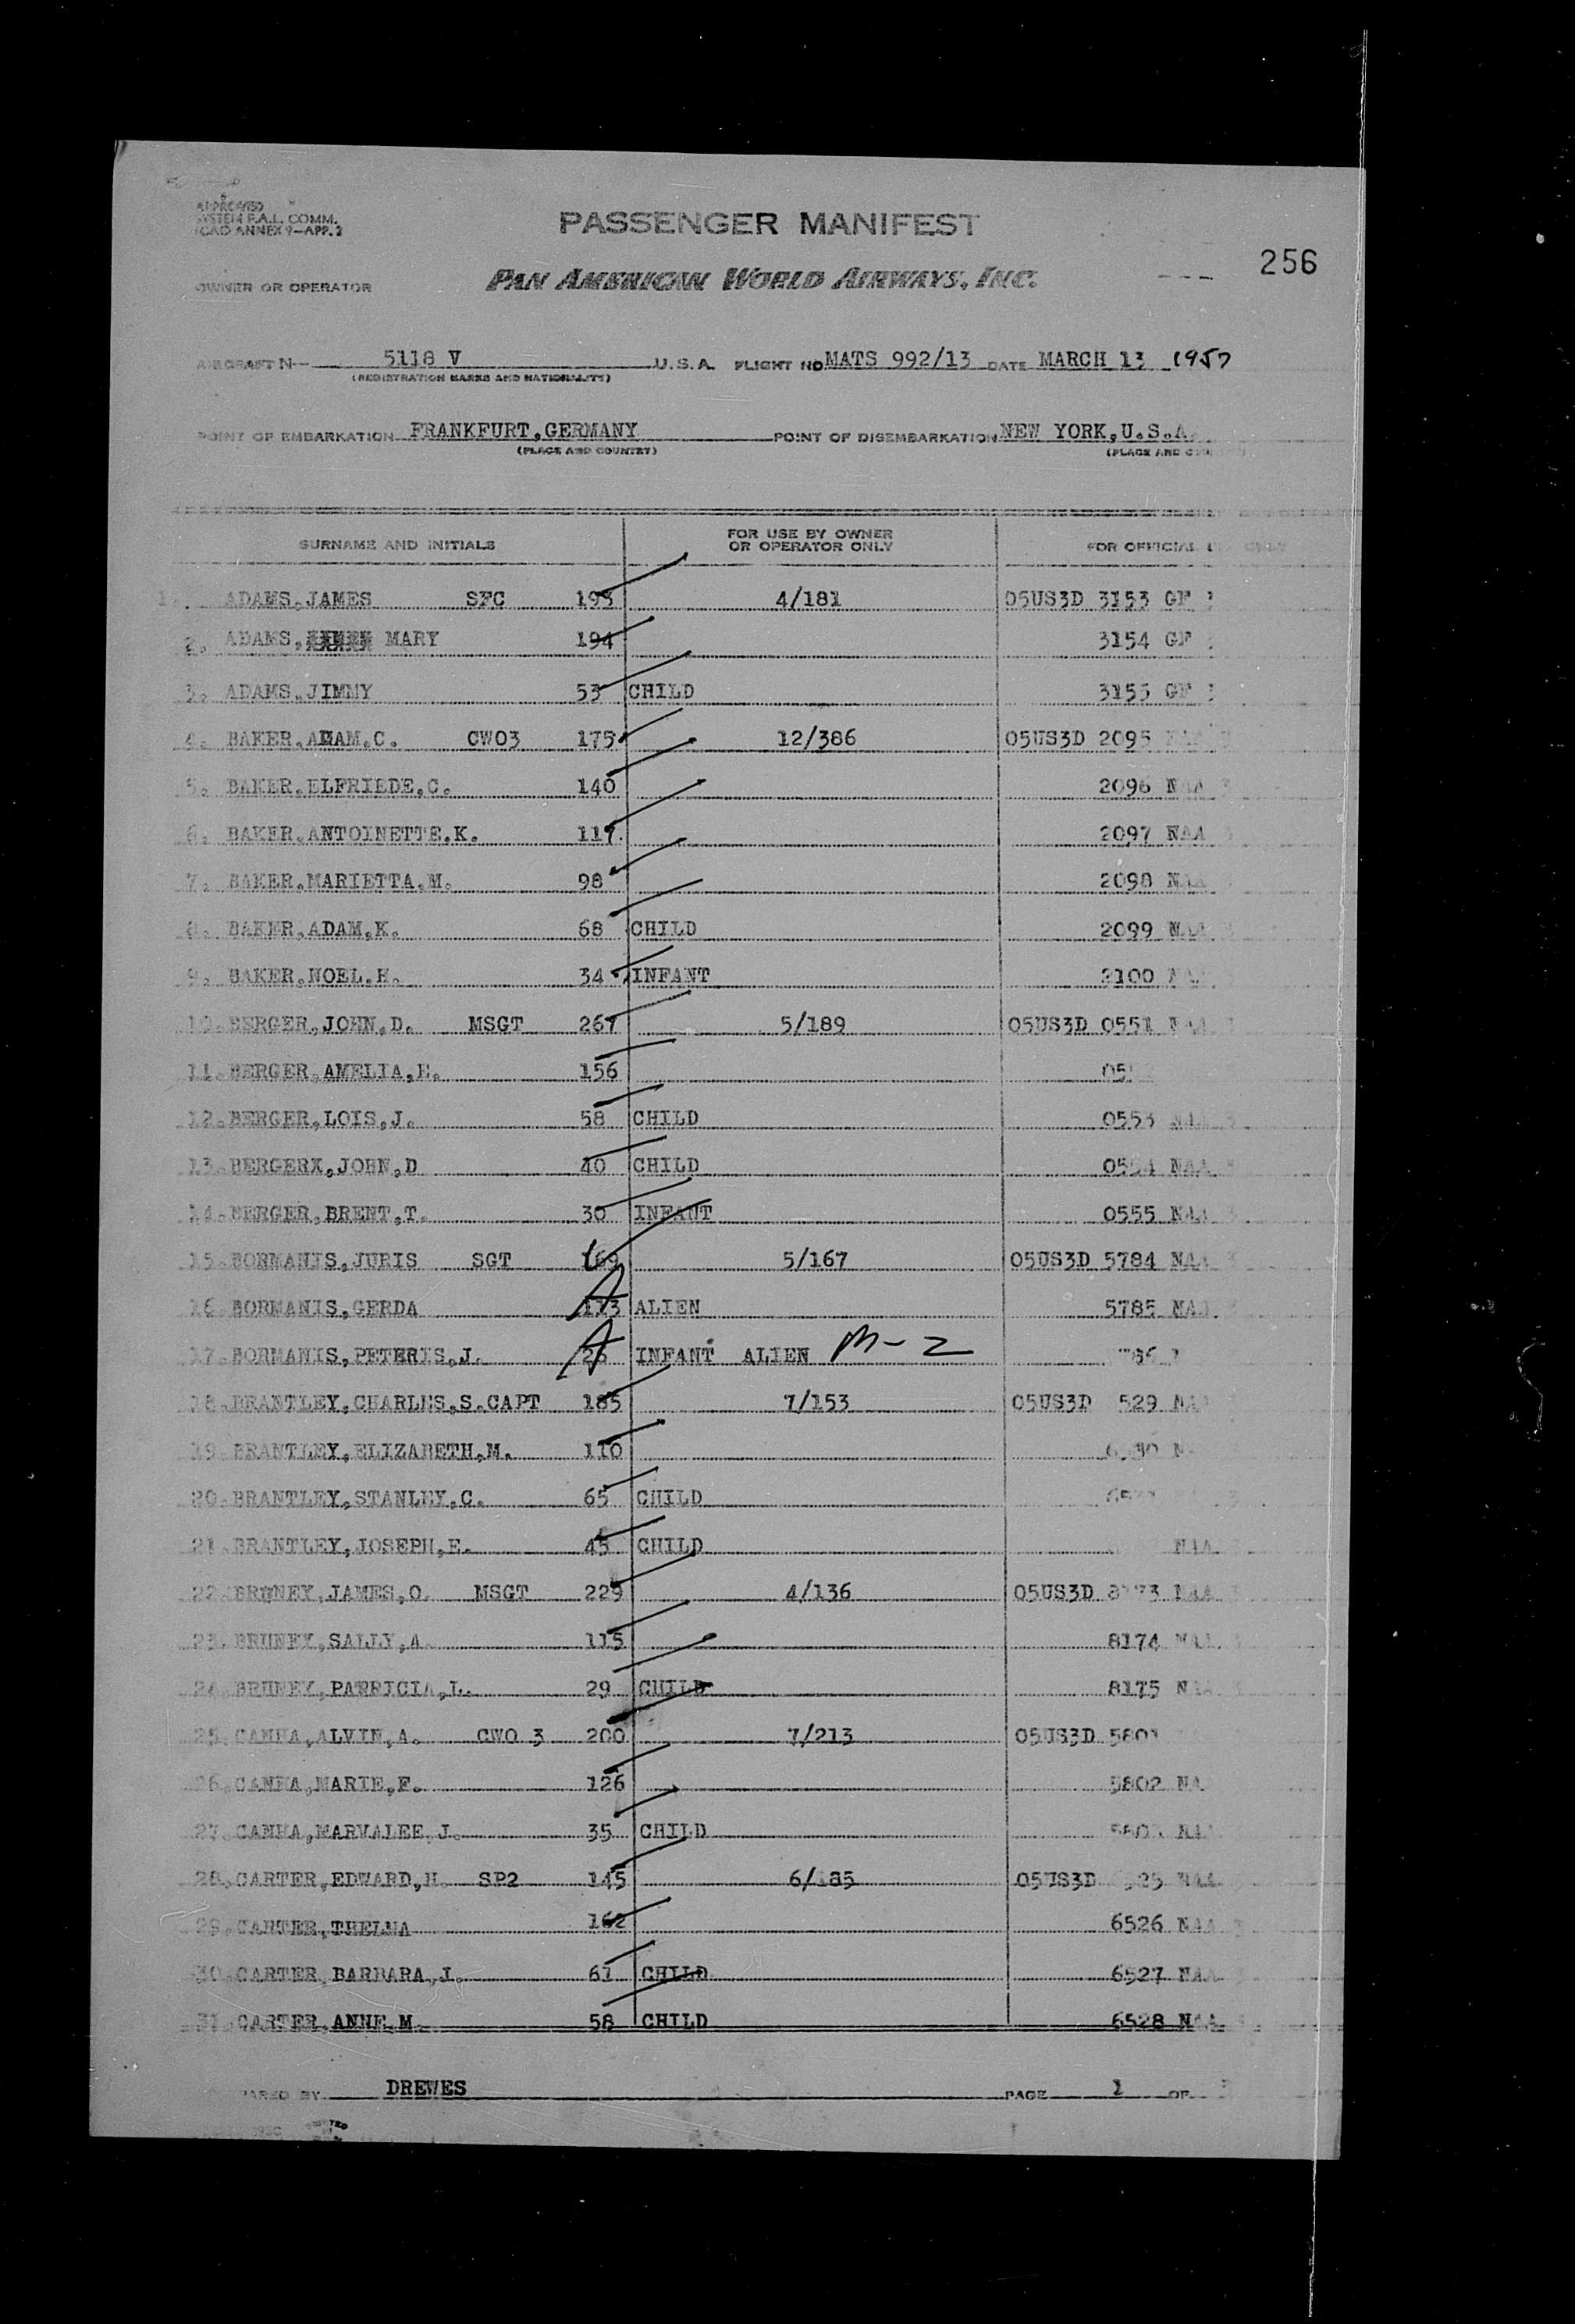 APPROVED
SYSTEM F.A.L. COMM.
ICAO ANNEX 9-APP. 2
PASSENGER MANIFEST
256
OWNER OR OPERATOR PAN AMERICAN WORLD AIRWAYS, INC.
AIRCRAFT N- 5118 V U.S.A. FLIGHT NO MATS 992/13 DATE MARCH 13 1957
(REGISTRATION MARKS AND NATIONALITY)
POINT OF EMBARKATION FRANKFURT,GERMANY POINT OF DISEMBARKATION NEW YORK,U.S.A.
(PLACE AND COUNTRY) (PLACE AND
SURNAME AND INITIALS FOR USE BY OWNER OR OPERATOR ONLY FOR OFFICIAL ONLY
1. ADAMS,JAMES SFC 193 4/181 05US3D 3153 GF
2. ADAMS, MARY 194 3154 GF
3. ADAMS,JIMMY 53 CHILD 3155 GF
4. BAKER,ADAM,C. CWO3 175 12/386 05US3D 2095
5. BAKER,ELFRIEDE,C. 140 2096 NAA
6. BAKER,ANTOINETTE,K. 117 2097 NAA
7. BAKER,MARIETTA,M. 98 2098 NAA
8. BAKER,ADAM,K. 68 CHILD 2099 NAA
9. BAKER,NOEL,H. 34 INFANT 2100
10. BERGER,JOHN,D. MSGT 267 5/189 05US3D 0551
11. BERGER,AMELIA,E. 156
12. BERGER,LOIS,J. 58 CHILD 0553 NAA
13. BERGERX,JOHN,D 40 CHILD 0554 NAA
14. BERGER,BRENT,T. 30 INFANT 0555 NAA
15. BORMANIS,JURIS SGT 169 5/167 05US3D 5784 NAA
16. BORMANIS,GERDA A 113 ALIEN 5785 NAA
17. BORMANIS,PETERIS,J. A 26 INFANT ALIEN M-2
18. BRANTLEY,CHARLES,S.CAPT 185 7/153 05US3D 529 NAA
19. BRANTLEY,ELIZABETH,M. 110
20. BRANTLEY,STANLEY,C. 65 CHILD
21. BRANTLEY,JOSEPH,E. 45 CHILD NAA
22. BRUNEY,JAMES,O. MSGT 229 4/136 05US3D NAA
23. BRUNEY,SALLY,A. 115 8174 NAA
24. BRUNEY,PATRICIA,L. 29 CHILD 8175 NAA
25. CANHA,ALVIN,A. CWO 3 200 7/213 05US3D 5801
26. CANHA,MARIE,F. 126 5802 NA
27. CANHA,MARVALEE,J. 35 CHILD NAA
28. CARTER,EDWARD,H. SP2 145 6/185 05US3D NAA
29. CARTER,THELMA 162 6526 NAA
30. CARTER,BARBARA,J. 61 CHILD 6527 NAA
31. CARTER,ANNE,M. 58 CHILD 6528 NAA
BY DREWES PAGE 1 OF